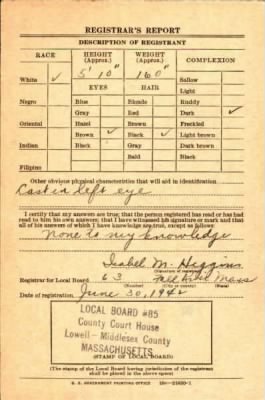 REGISTRAR'S REPORT
DESCRIPTION OF REGISTRANT
RACE HEIGHT (Approx.) WEIGHT (Approx.) COMPLEXION
White ✓ 5' 10" 160 Sallow
EYES HAIR Light
Negro Blue Blonde Ruddy
Gray Red Dark ✓
Oriental Hazel Brown Freckled
Brown ✓ Black ✓ Light brown
Indian Black Gray Dark brown
Bald Black
Filipino
Other obvious physical characteristics that will aid in identification
Cast in left eye
I certify that my answers are true; that the person registered has read or has had
read to him his own answers; that I have witnessed his signature or mark and that
all of his answers of which I have knowledge are true, except as follows:
None to my knowledge
Isabel M. Higgins
(Signature of registrar)
Registrar for Local Board 63 Mass
(Number) (City or county) (State)
Date of registration June 30, 1942
LOCAL BOARD #85
County Court House
Lowell - Middlesex County
MASSACHUSETTS
(STAMP OF LOCAL BOARD)
(The stamp of the Local Board having jurisdiction of the registrant
shall be placed in the above space)
U. S. GOVERNMENT PRINTING OFFICE 16—21630-1